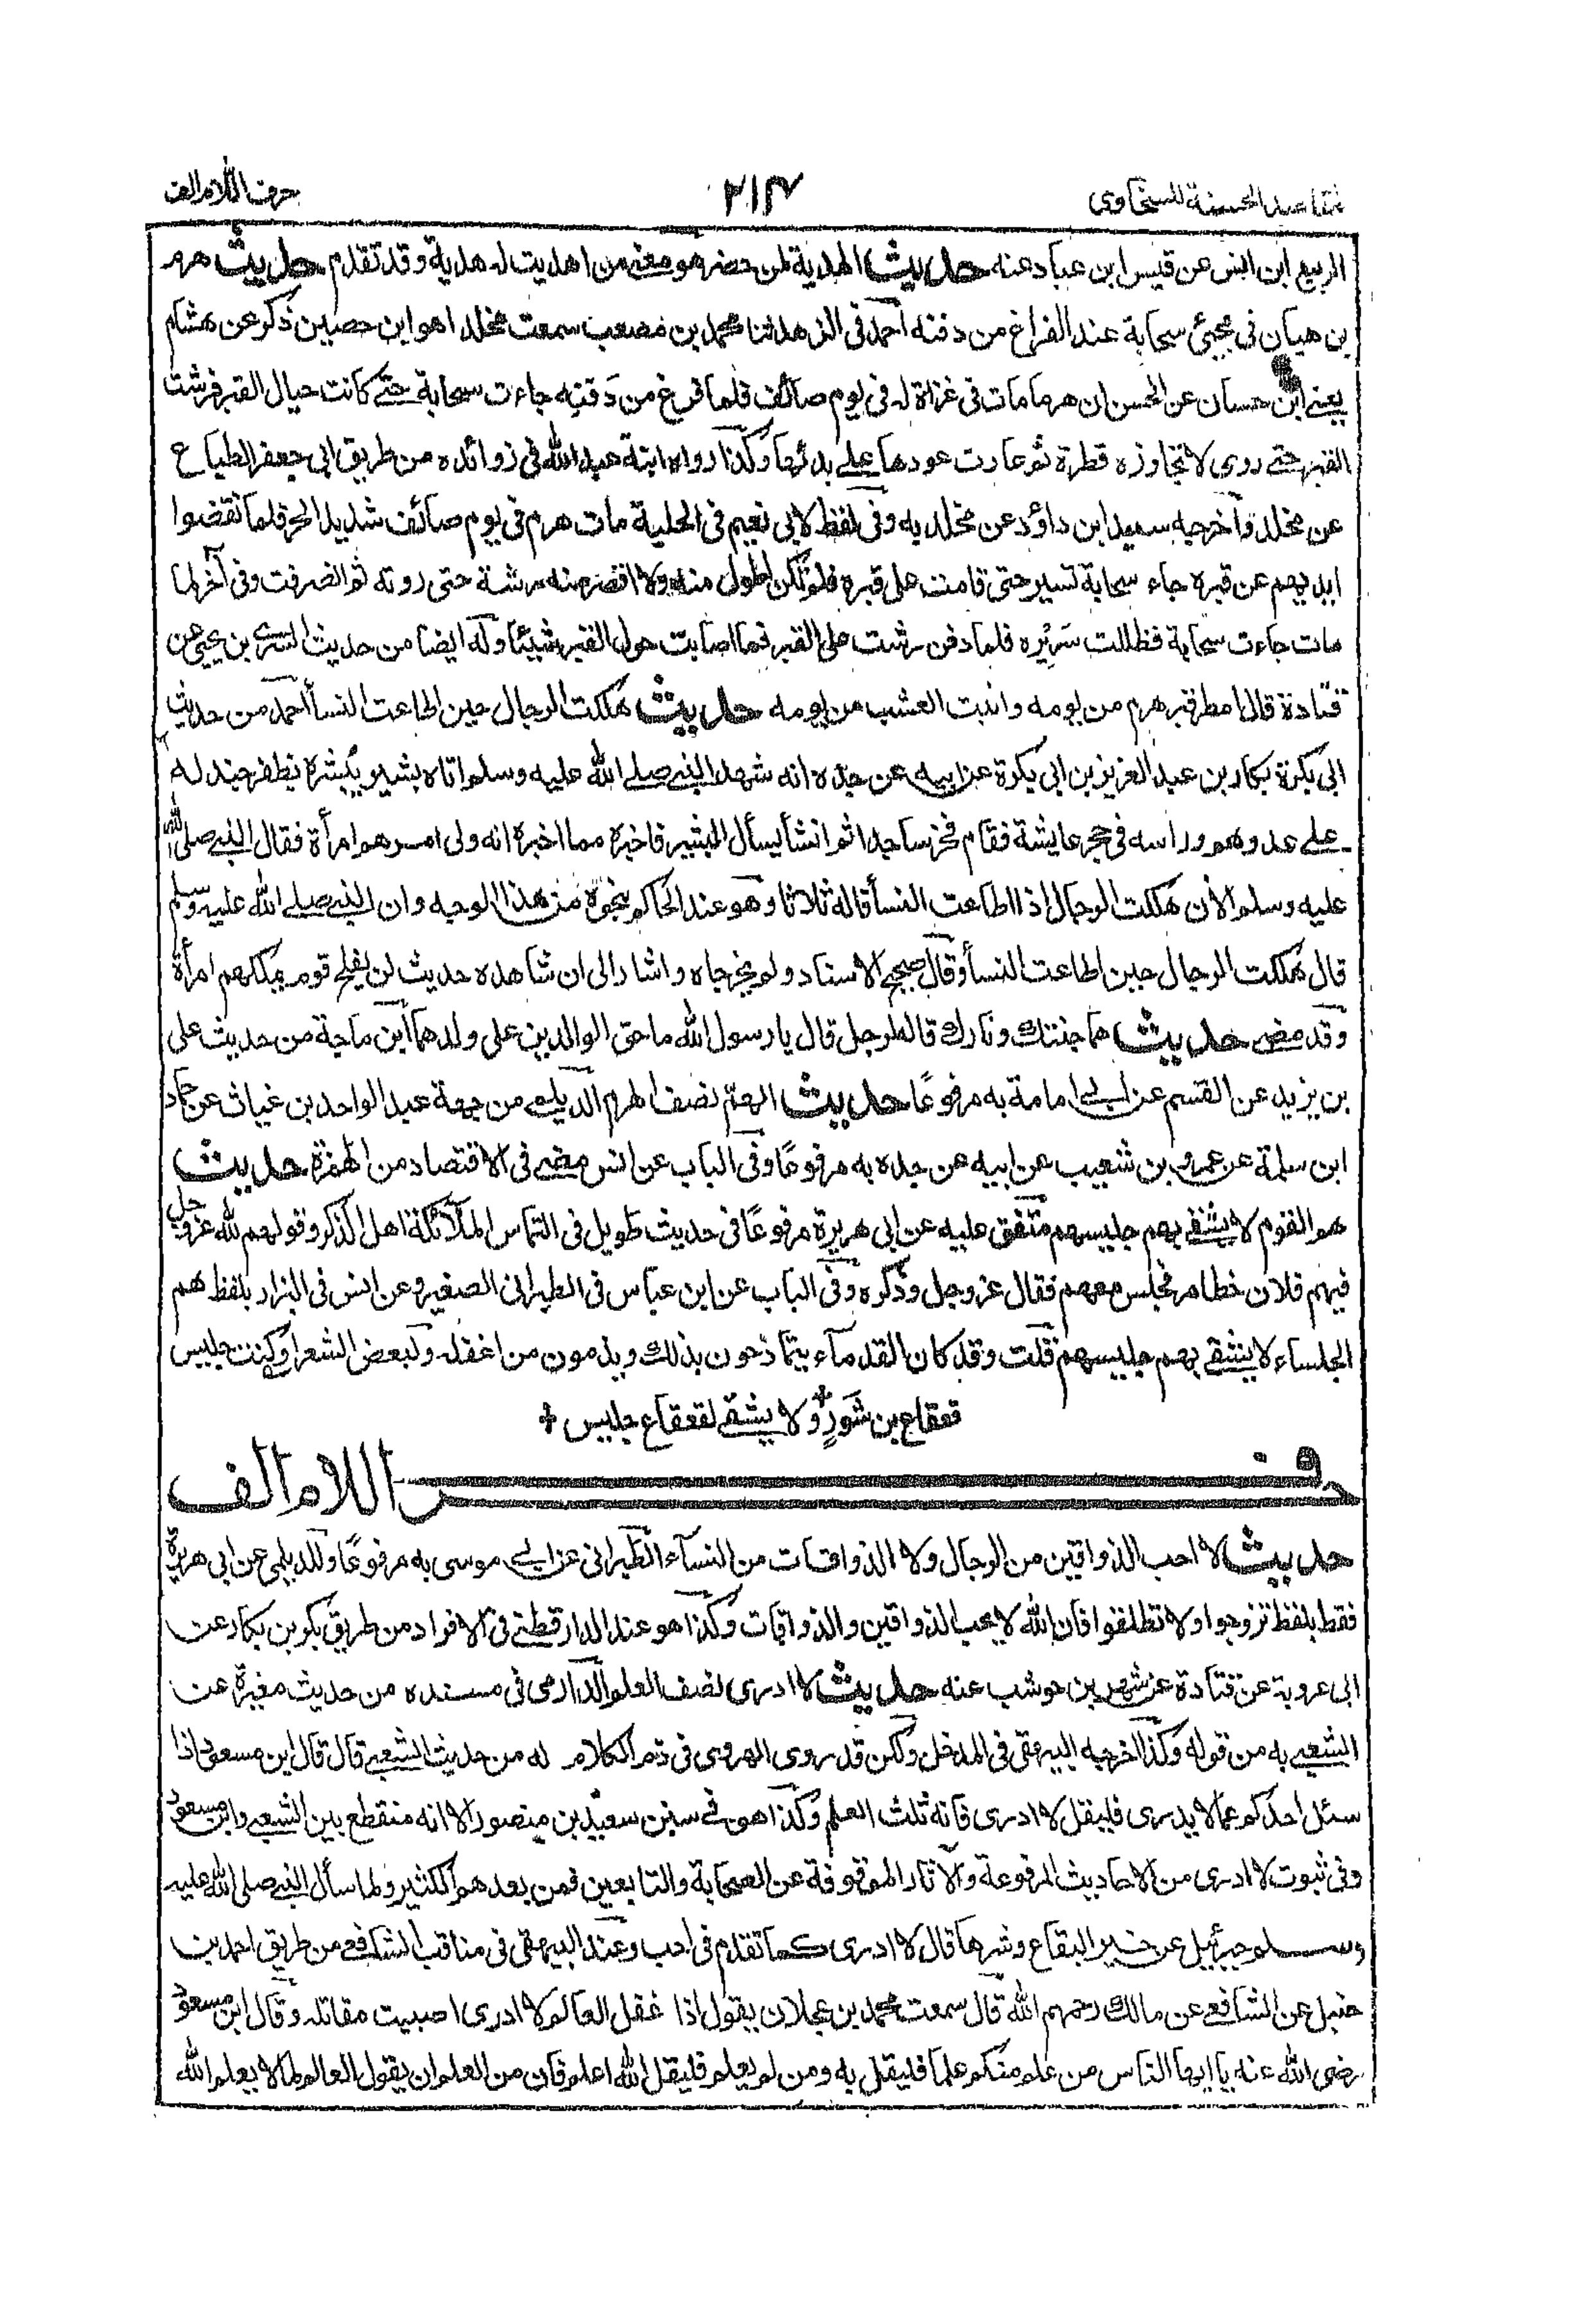 مقاصد الحسنة للسخاوي
٢١٣
حرف اللام الف
الربيع ابن انس عن قيس ابن عباد عنه حديث الهدية لمن حضر هو معنى من اهديت له هدية وقد تقدم حديث هرم
بن هيان فى مجيئ سحابة عند الفراغ من دفنه احمد فى الزهد ثنا محمد بن مصعب سمعت مخلدا هو ابن حصين ذكر عن هشام
يعنى ابن حسان عن الحسن ان هرما مات فى غزاة له فى يوم صائف فلما فرغ من دفنه جاءت سحابة حتى كانت حيال القبر فرشت
القبر حتى روى لا تجاوزه قطرة ثم عادت عودها على بدئها وكذا رواه ابنة عبد الله فى زوائده من طريق ابى جعفر الطباع
عن مخلد واخرجه سعيد ابن داؤد عن مخلد به وفى لفظ لابى نعيم فى الحلية مات هرم فى يوم صائف شديد الحر فلما نقضوا
ايديهم عن قبره جاء سحابة تسير حتى قامت على قبره فلم تكن اطول منه ولا اقصر منه مرشة حتى روته ثم انصرفت وفى آخر لما
مات جاءت سحابة فظللت سريره فلما دفن رشت على القبر فما اصابت حول القبر شيئا وله ايضا من حديث السرى بن يحيى عن
قتادة قال امطر قبر هرم من يومه وانبت العشب من يومه حديث هلكت الرجال حين اطاعت النسأ احمد من حديث
ابى بكرة بكار بن عبد العزيز بن ابى بكرة عن ابيه عن جده انه شهد النبى صلى الله عليه وسلم اتاه بشير يبشره بظفر جند له
على عدوهم وراسه فى حجر عايشة فقام فخر ساجدا ثم انشأ يسأل المبشير فاخبره مما اخبره انه ولى امرهم امرأة فقال النبى صلى الله
عليه وسلم الأن هلكت الرجال اذا اطاعت النسأ قاله ثلاثا وهو عند الحاكم بنحوه من هذا الوجه وان النبى صلى الله عليه وسلم
قال هلكت الرجال حين اطاعت النسأ وقال صحيح الاسناد ولم يخرجاه واشار الى ان شاهده حديث لن يفلح قوم يملكهم امرأة
وقد مضى حديث هما جنتك ونارك قاله لرجل قال يا رسول الله ما حق الوالدين على ولدهما ابن ماجة من حديث على
بن يزيد عن القسم عن ابى امامة به مرفوعًا حديث الهم نصف الهرم الديلمى من جهة عبد الواحد بن غياث عن حماد
ابن سلمة عن عمرو بن شعيب عن ابيه عن جده به مرفوعًا وفى الباب عن انس مضى فى الاقتصاد من الهمزة حديث
هم القوم لا يشقى بهم جليسهم متفق عليه عن ابى هريرة مرفوعًا فى حديث طويل فى التماس الملائكة اهل الذكر وقولهم لله عز وجل
فيهم فلان خطا مر فجلس معهم فقال عز وجل وذكره وفى الباب عن ابن عباس فى الطبرانى الصغير وعن انس فى البزار بلفظ هم
الجلساء لا يشقى بهم جليسهم قلت وقد كان القدماء يتماذحون بذلك ويذمون من اغفله ولبعض الشعرا وكنت جليس
قعقاع بن شَورٍ ولا يشقى لقعقاع جليس
حرف اللام الف
حديث لا احب الذواقين من الرجال ولا الذواقات من النسآء الطبرانى عن ابى موسى به مرفوعًا وللديلمى عن ابى هريرة
فقط بلفظ تزوجوا ولا تطلقوا فان الله لا يحب الذواقين والذواقات وكذا هو عند الدارقطنى فى الافراد من طريق بكر بن بكار عن
ابى عروبة عن قتادة عن شهر بن حوشب عنه حديث لا ادرى نصف العلم الدارمى فى مسنده من حديث مغيرة عن
الشعبى به من قوله وكذا اخرجه البيهقى فى المدخل ولكن قد روى الهروى فى ذم الكلام له من حديث الشعبى قال قال ابن مسعود اذا
سئل احدكم عما لا يدرى فليقل لا ادرى فانه ثلث العلم وكذا هو فى سنن سعيد بن منصور الا انه منقطع بين الشعبى وابن مسعود
وفى ثبوت لا ادرى من الاحاديث المرفوعة والآثار الموقوفة عن الصحابة والتابعين فمن بعدهم الكثير ولما سأل النبى صلى الله عليه
وسلم جبرئيل عن خير البقاع وشرها قال لا ادرى كما تقدم فى احب وعند البيهقى فى مناقب الشافعى من طريق احمد بن
حنبل عن الشافعى عن مالك رحمهم الله قال سمعت محمد بن عجلان يقول اذا غفل العالم لا ادرى اصيبت مقاتله وقال ابن مسعود
رضى الله عنه يا ايها الناس من علم منكم علما فليقل به ومن لم يعلم فليقل الله اعلم فان من العلم ان يقول العالم لما لا يعلم الله